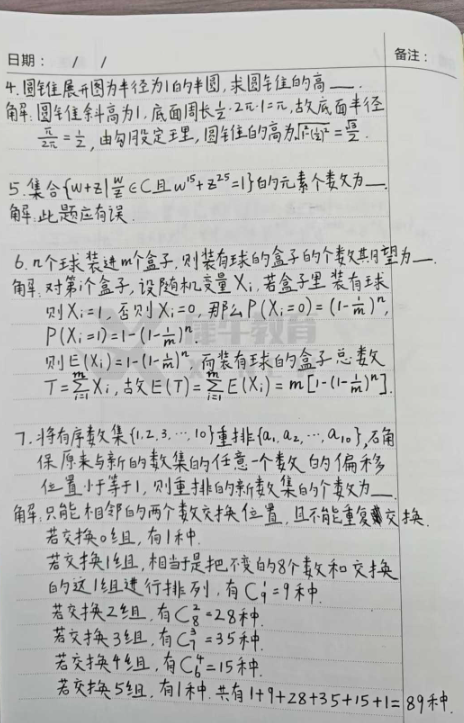 日期: / / 备注:
4.圆锥展开图为半径为1的半圆,求圆锥的高___.
解:圆锥斜高为1,底面周长½·2π·1=π,故底面半径
π/2π=½,由勾股定理,圆锥的高为√(1²-(½)²)=√3/2.
5.集合{w+z|w/z∈C且w¹⁵+z²⁵=1}的元素个数为___.
解:此题应有误.
6.n个球装进m个盒子,则装有球的盒子的个数期望为___.
解:对第i个盒子,设随机变量Xᵢ,若盒子里装有球
则Xᵢ=1,否则Xᵢ=0,那么P(Xᵢ=0)=(1-1/m)ⁿ,
P(Xᵢ=1)=1-(1-1/m)ⁿ.
则E(Xᵢ)=1-(1-1/m)ⁿ,而装有球的盒子总数
T=∑ᵢ₌₁ᵐXᵢ,故E(T)=∑ᵢ₌₁ᵐE(Xᵢ)=m[1-(1-1/m)ⁿ].
7.将有序数集{1,2,3,…,10}重排{a₁,a₂,…,a₁₀},确
保原来与新的数集的任意一个数的偏移
位置小于等于1,则重排的新数集的个数为___.
解:只能相邻的两个数交换位置,且不能重复交换.
若交换0组,有1种.
若交换1组,相当于是把不变的8个数和交换
的这1组进行排列,有C₉¹=9种.
若交换2组,有C₈²=28种.
若交换3组,有C₇³=35种.
若交换4组,有C₆⁴=15种.
若交换5组,有1种.共有1+9+28+35+15+1=89种.